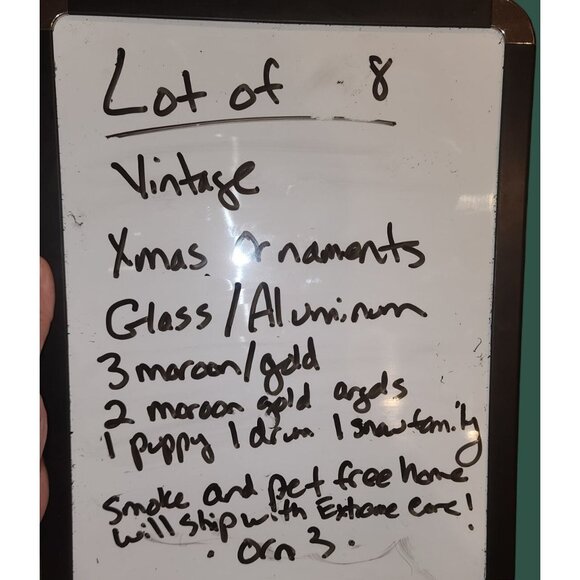 Lot of 8
Vintage
Xmas Ornaments
Glass/Aluminum
3 maroon/gold
2 maroon gold angels
1 puppy 1 drum 1 snowfamily
Smoke and pet free home
will ship with Extreme care!
· orn 3 ·